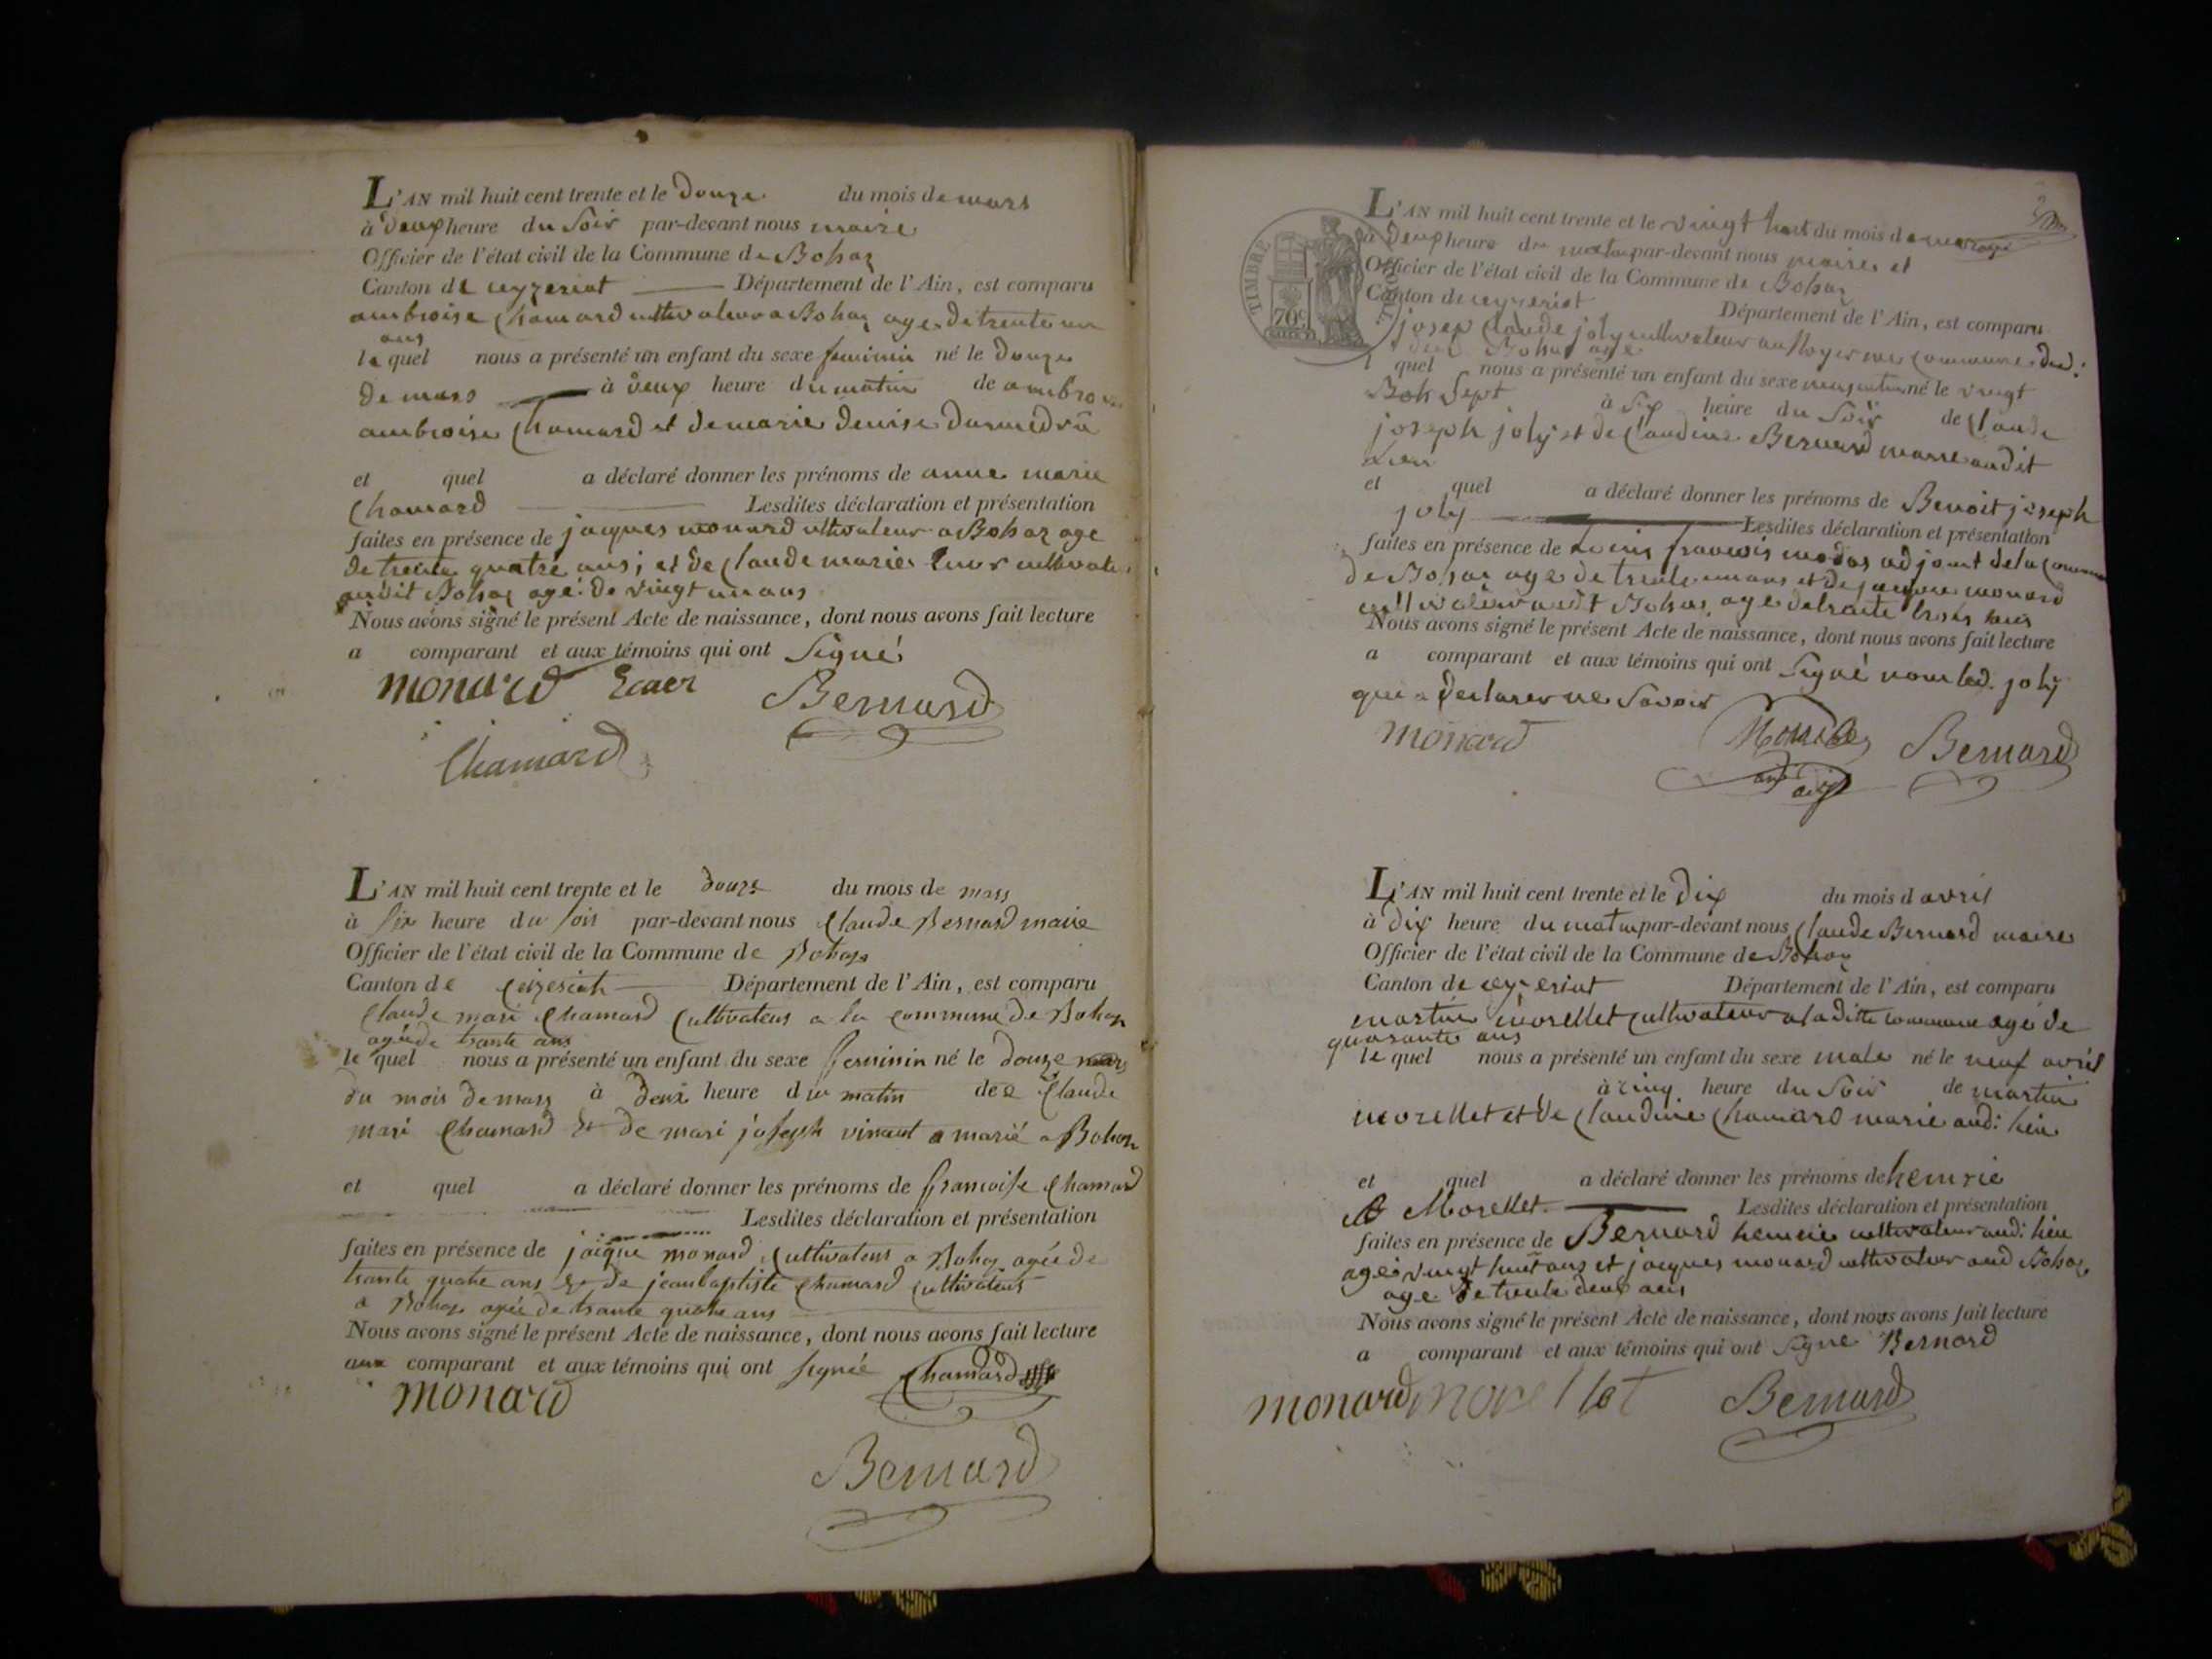 L'AN mil huit cent trente et le douze du mois de mars
à deux heure du soir par-devant nous maire
Officier de l'état civil de la Commune de Bohaz
Canton de ceyzeriat Département de l'Ain, est comparu
ambroise Chamard cultivateur a Bohaz age de trente un
ans
le quel nous a présenté un enfant du sexe feminin né le douze
de mars à deux heure du matin de ambroise
ambroise Chamard et de marie denise
et quel a déclaré donner les prénoms de anne marie
Chamard Lesdites déclaration et présentation
faites en présence de jacques monard ultivateur a Bohaz age
de trente quatre ans; et de Claude marie
audit Bohaz agé de vingt un ans
Nous avons signé le présent Acte de naissance, dont nous avons fait lecture
a comparant et aux témoins qui ont signé
monard Bernard
Chamard
L'AN mil huit cent trente et le douze du mois de mars
à six heure du soir par-devant nous Claude Bernard maire
Officier de l'état civil de la Commune de Bohaz
Canton de Département de l'Ain, est comparu
Claude mari Chamard Cultivateur a la commune de Bohaz
agée de trante ans
le quel nous a présenté un enfant du sexe feminin né le douze mars
du mois de mars à deux heure du matin de Claude
mari Chamard & de mari joseph vincent a marié a Bohaz
et quel a déclaré donner les prénoms de francoise Chamard
Lesdites déclaration et présentation
faites en présence de jaique monard Cultivateur a Bohaz agée de
trante quatre ans & de jean baptiste Chamard Cultivateur
a Bohaz agée de trante quatre ans
Nous avons signé le présent Acte de naissance, dont nous avons fait lecture
aux comparant et aux témoins qui ont signée Chamard
monard
Bernard
TIMBRE ROYAL
70c
L'AN mil huit cent trente et le vingt huit du mois de mars
à deux heure du matin par-devant nous maire et
Officier de l'état civil de la Commune de Bohaz
Canton de ceyzeriat Département de l'Ain, est comparu
josep Claude joly cultivateur commune dud:
Bohaz age
l quel nous a présenté un enfant du sexe masculin né le vingt
sept à six heure du soir de Claude
joseph joly et de Claudine Bernard marié audit
Lieu
et quel a déclaré donner les prénoms de Benoit joseph
joly Lesdites déclaration et présentation
faites en présence de Louis francois adjoint de la commune
de Bohaz age de trente un ans et de jacque monard
cultivateur audit Bohaz age de trante trois ans
Nous avons signé le présent Acte de naissance, dont nous avons fait lecture
a comparant et aux témoins qui ont signé non led. joly
qui a declarer ne savoir
monard Bernard
L'AN mil huit cent trente et le dix du mois d avril
à dix heure du matin par-devant nous Claude Bernard maire
Officier de l'état civil de la Commune de Bohaz
Canton de ceyzeriat Département de l'Ain, est comparu
martin morellet cultivateur a la ditte commune agé de
quarante ans
le quel nous a présenté un enfant du sexe male né le neuf avril
à cinq heure du soir de martin
morellet et de Claudine Chamard marié aud: lieu
et quel a déclaré donner les prénoms de henrie
Morellet Lesdites déclaration et présentation
faites en présence de Bernard henrie cultivateur aud: lieu
age vingt huit ans et jacques monard cultivateur aud Bohaz
age de trente deux ans
Nous avons signé le présent Acte de naissance, dont nous avons fait lecture
a comparant et aux témoins qui ont signé Bernard
monard morellet Bernard